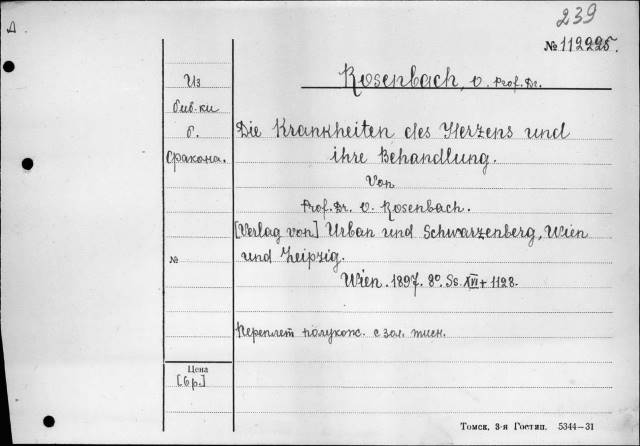 Д
239
№ 112225.
Из
биб-ки
б.
Фракона.
Rosenbach, O. Prof. Dr.
Die Krankheiten des Herzens und
ihre Behandlung.
Von
Prof. Dr. O. Rosenbach.
[Verlag von] Urban und Schwarzenberg, Wien
und Leipzig.
№
Wien. 1897. 8°. Ss. XVI + 1128.
Переплет полукож. с зол. тисн.
Цена
[6р.]
Томск, 3-я Гостип. 5344—31